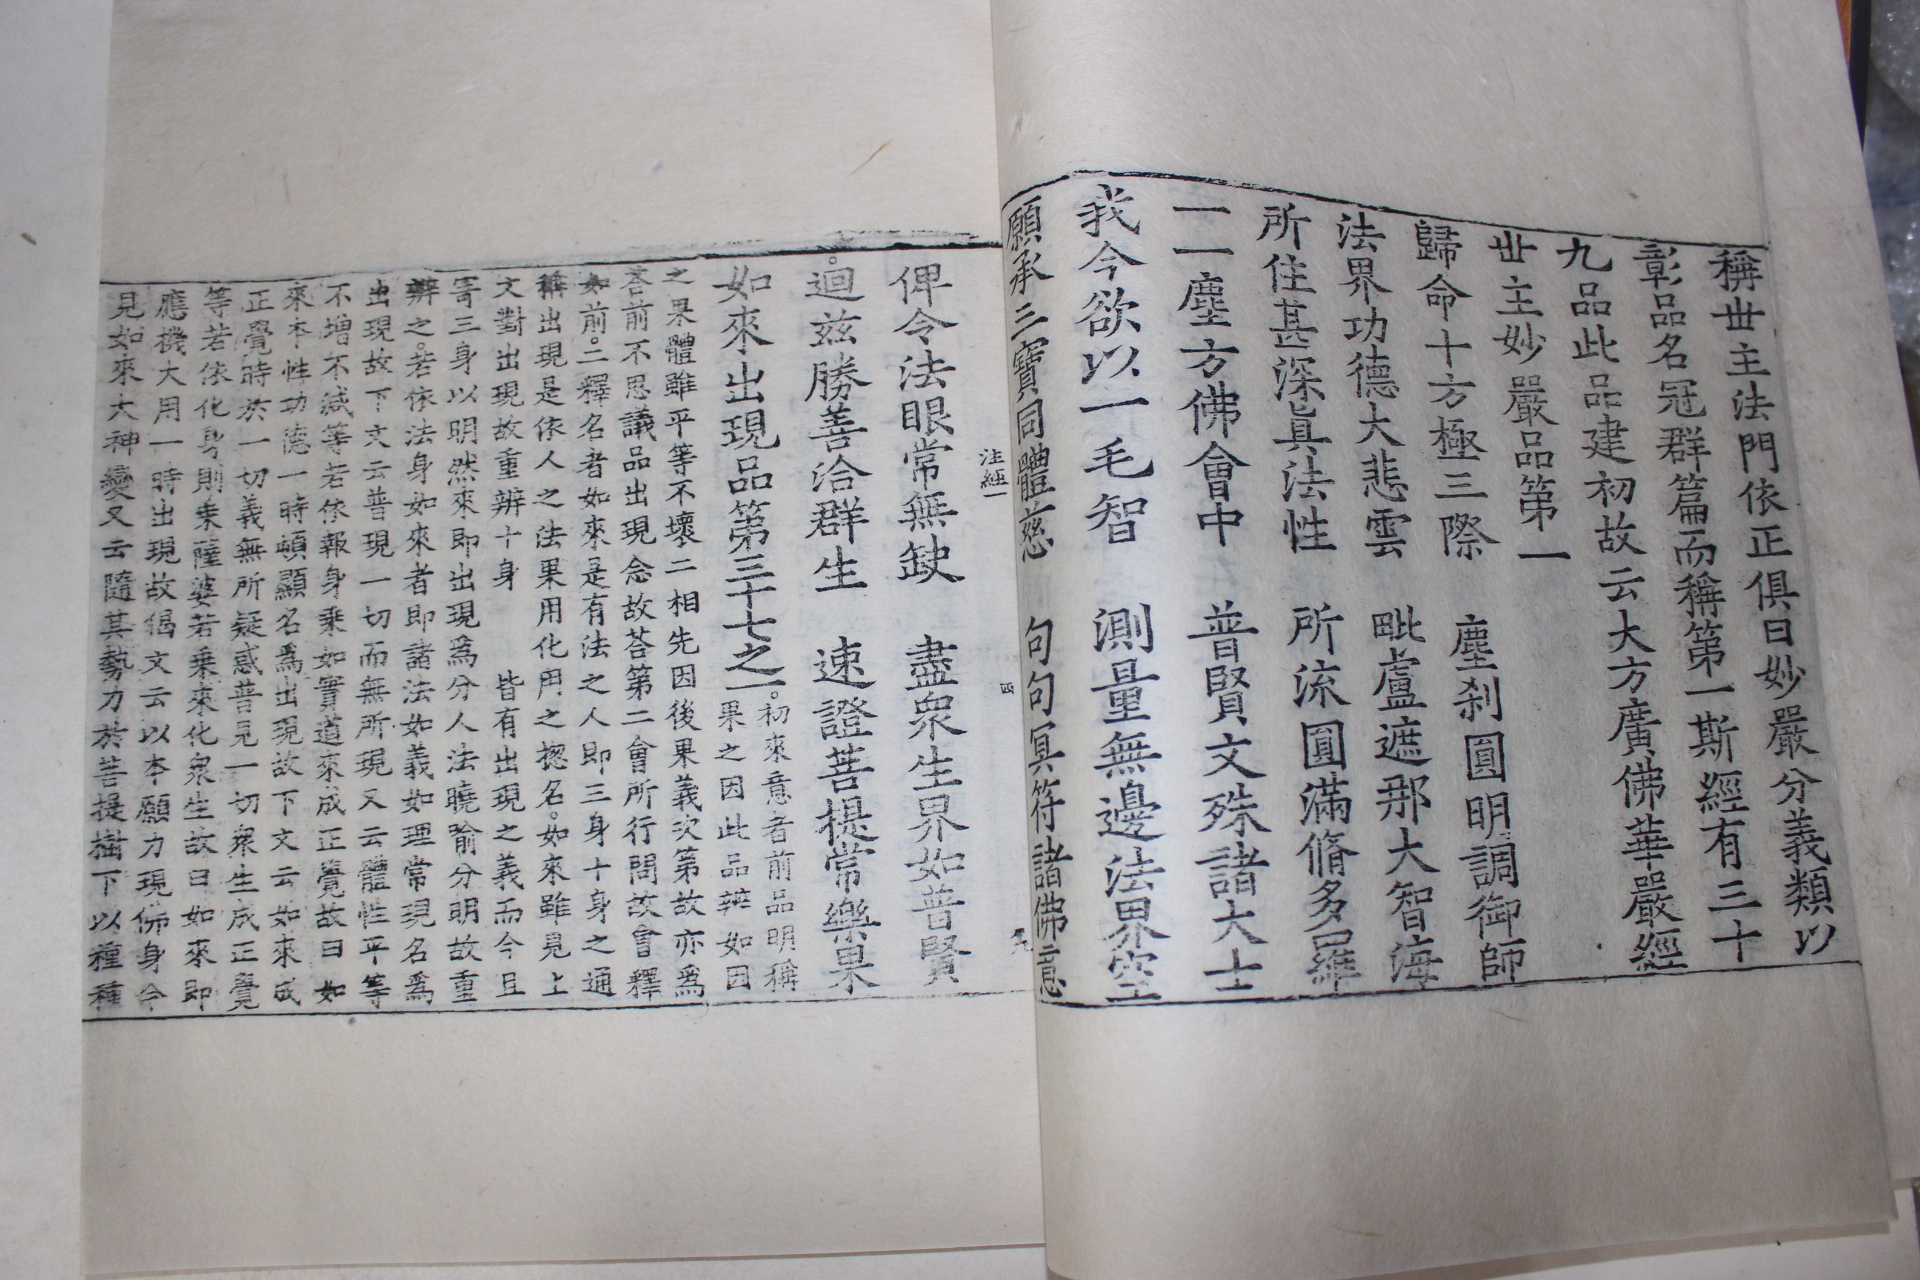 稱世主法門依正俱曰妙嚴分義類以
彰品名冠群篇而稱第一斯經有三十
九品此品建初故云大方廣佛華嚴經
世主妙嚴品第一
歸命十方極三際 塵刹圓明調御師
法界功德大悲雲 毗盧遮那大智海
所住甚深真法性 所流圓滿脩多羅
一一塵方佛會中 普賢文殊諸大士
我今欲以一毛智 測量無邊法界空
願承三寶同體慈 句句冥符諸佛意
注經一
四
俾令法眼常無缺 盡眾生界如普賢
迴茲勝善洽群生 速證菩提常樂果
如來出現品第三十七之一 初來意者前品明稱
果之因此品辨如因
之果體雖平等不壞二相先因後果義次第故亦為
荅前不思議品出現念故荅第二會所行問故會釋
如前二釋名者如來是有法之人即三身十身之通
稱出現是依人之法果用化用之揔名如來雖見上
文對出現故重辨十身 皆有出現之義而今且
寄三身以明然來即出現為分人法曉喻分明故重
辨之若依法身如來者即諸法如義如理常現名為
出現故下文云普現一切而無所現又云體性平等
不增不減等若依報身乘如實道來成正覺故曰如
來本性功德一時頓顯名為出現故下文云如來成
正覺時於一切義無所疑惑普見一切眾生成正覺
等若依化身則乗薩婆若乗來化眾生故曰如來即
應機大用一時出現故偈文云以本願力現佛身令
見如來大神變又云隨其勢力於菩提樹下以種種